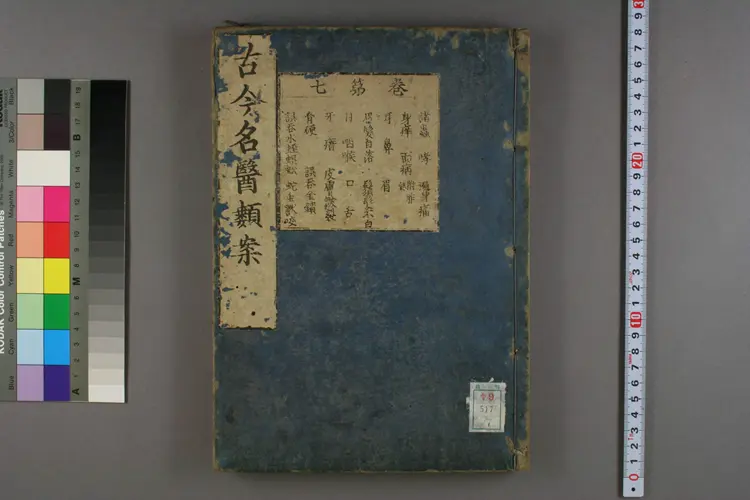 古今名醫類案
卷第七
諸蟲 哮 遍身痛
身痒 面病
耳 鼻 眉
目 咽喉 口 舌
牙 痔 皮膚皸裂
骨硬 誤吞金鐵
誤吞水蛭蜈蚣 蛇虫獸咬
90
517
KODAK Color Control Patches
Blue
Cyan
Green
Yellow
Red
Magenta
White
3/Color
Black
Kodak
A 1 2 3 4 5 6 M 8 9 10 11 12 13 14 15 B 17 18 19
0 1 2 3 4 5 6 7 8 9 10 1 2 3 4 5 6 7 8 9 20 1 2 3 4 5 6 7 8 9 3